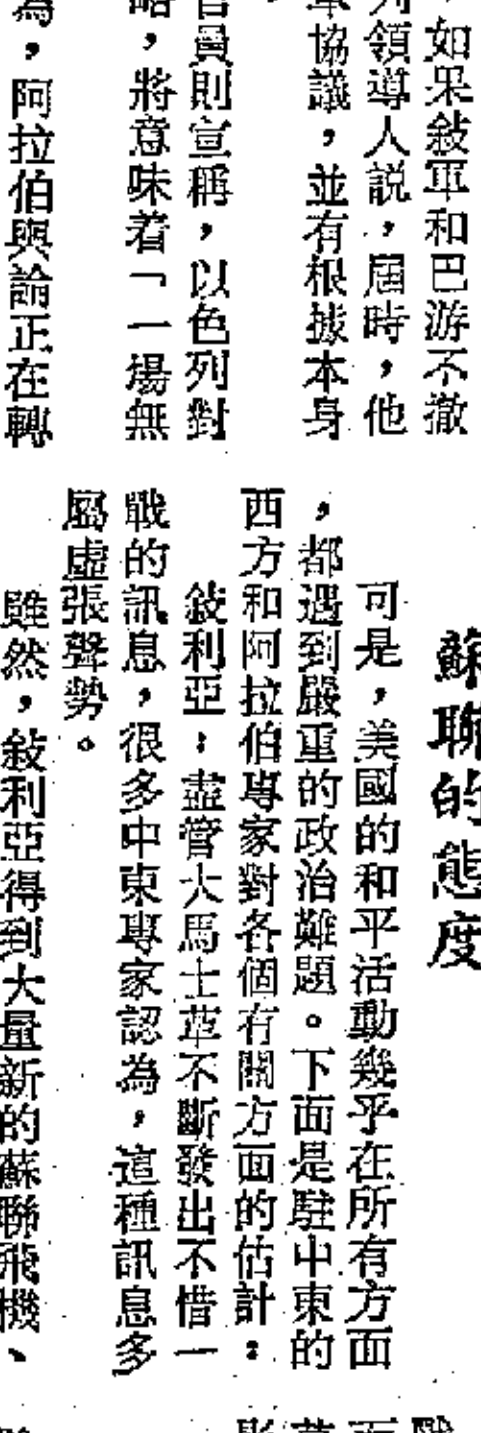 ，如果敍軍和巴游不撤
列領導人説，屆時，他
協議，並有根據本身
官員則宣稱，以色列對
略，將意味着「一場無
為，阿拉伯輿論正在轉
蘇聯的態度
可是，美國的和平活動幾乎在所有方面
，都遇到嚴重的政治難題。下面是駐中東的
西方和阿拉伯專家對各個有關方面的估計：
敍利亞：盡管大馬士革不斷發出不惜一
戰的訊息，很多中東專家認為，這種訊息多
屬虛張聲勢。
雖然，敍利亞得到大量新的蘇聯飛機、